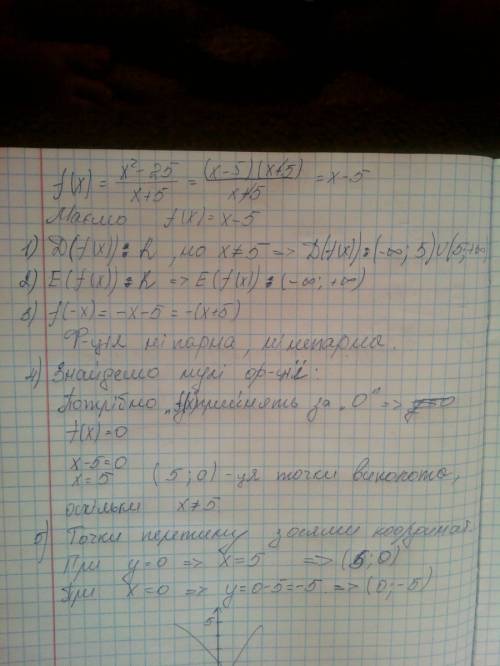 f(x) = x²-25 / x+5 = (x-5)(x+5) / x+5 = x-5
Маємо f(x) = x-5
1) D(f(x)): R, но x≠5 => D(f(x)): (-∞; 5)∪(5;+∞
2) E(f(x)): R => E(f(x)): (-∞; +∞)
3) f(-x) = -x-5 = -(x+5)
Ф-ція ні парна, ні непарна.
4) Знайдемо нулі ф-ції:
Потрібно f(x) прийнять за "0" => y=0
f(x)=0
x-5=0
x=5 (5;0) - ця точка виколота,
оскільки x≠5
5) Точки перетину з осями координат.
При y=0 => x=5 => (5;0)
При x=0 => y=0-5=-5 => (0;-5)
5